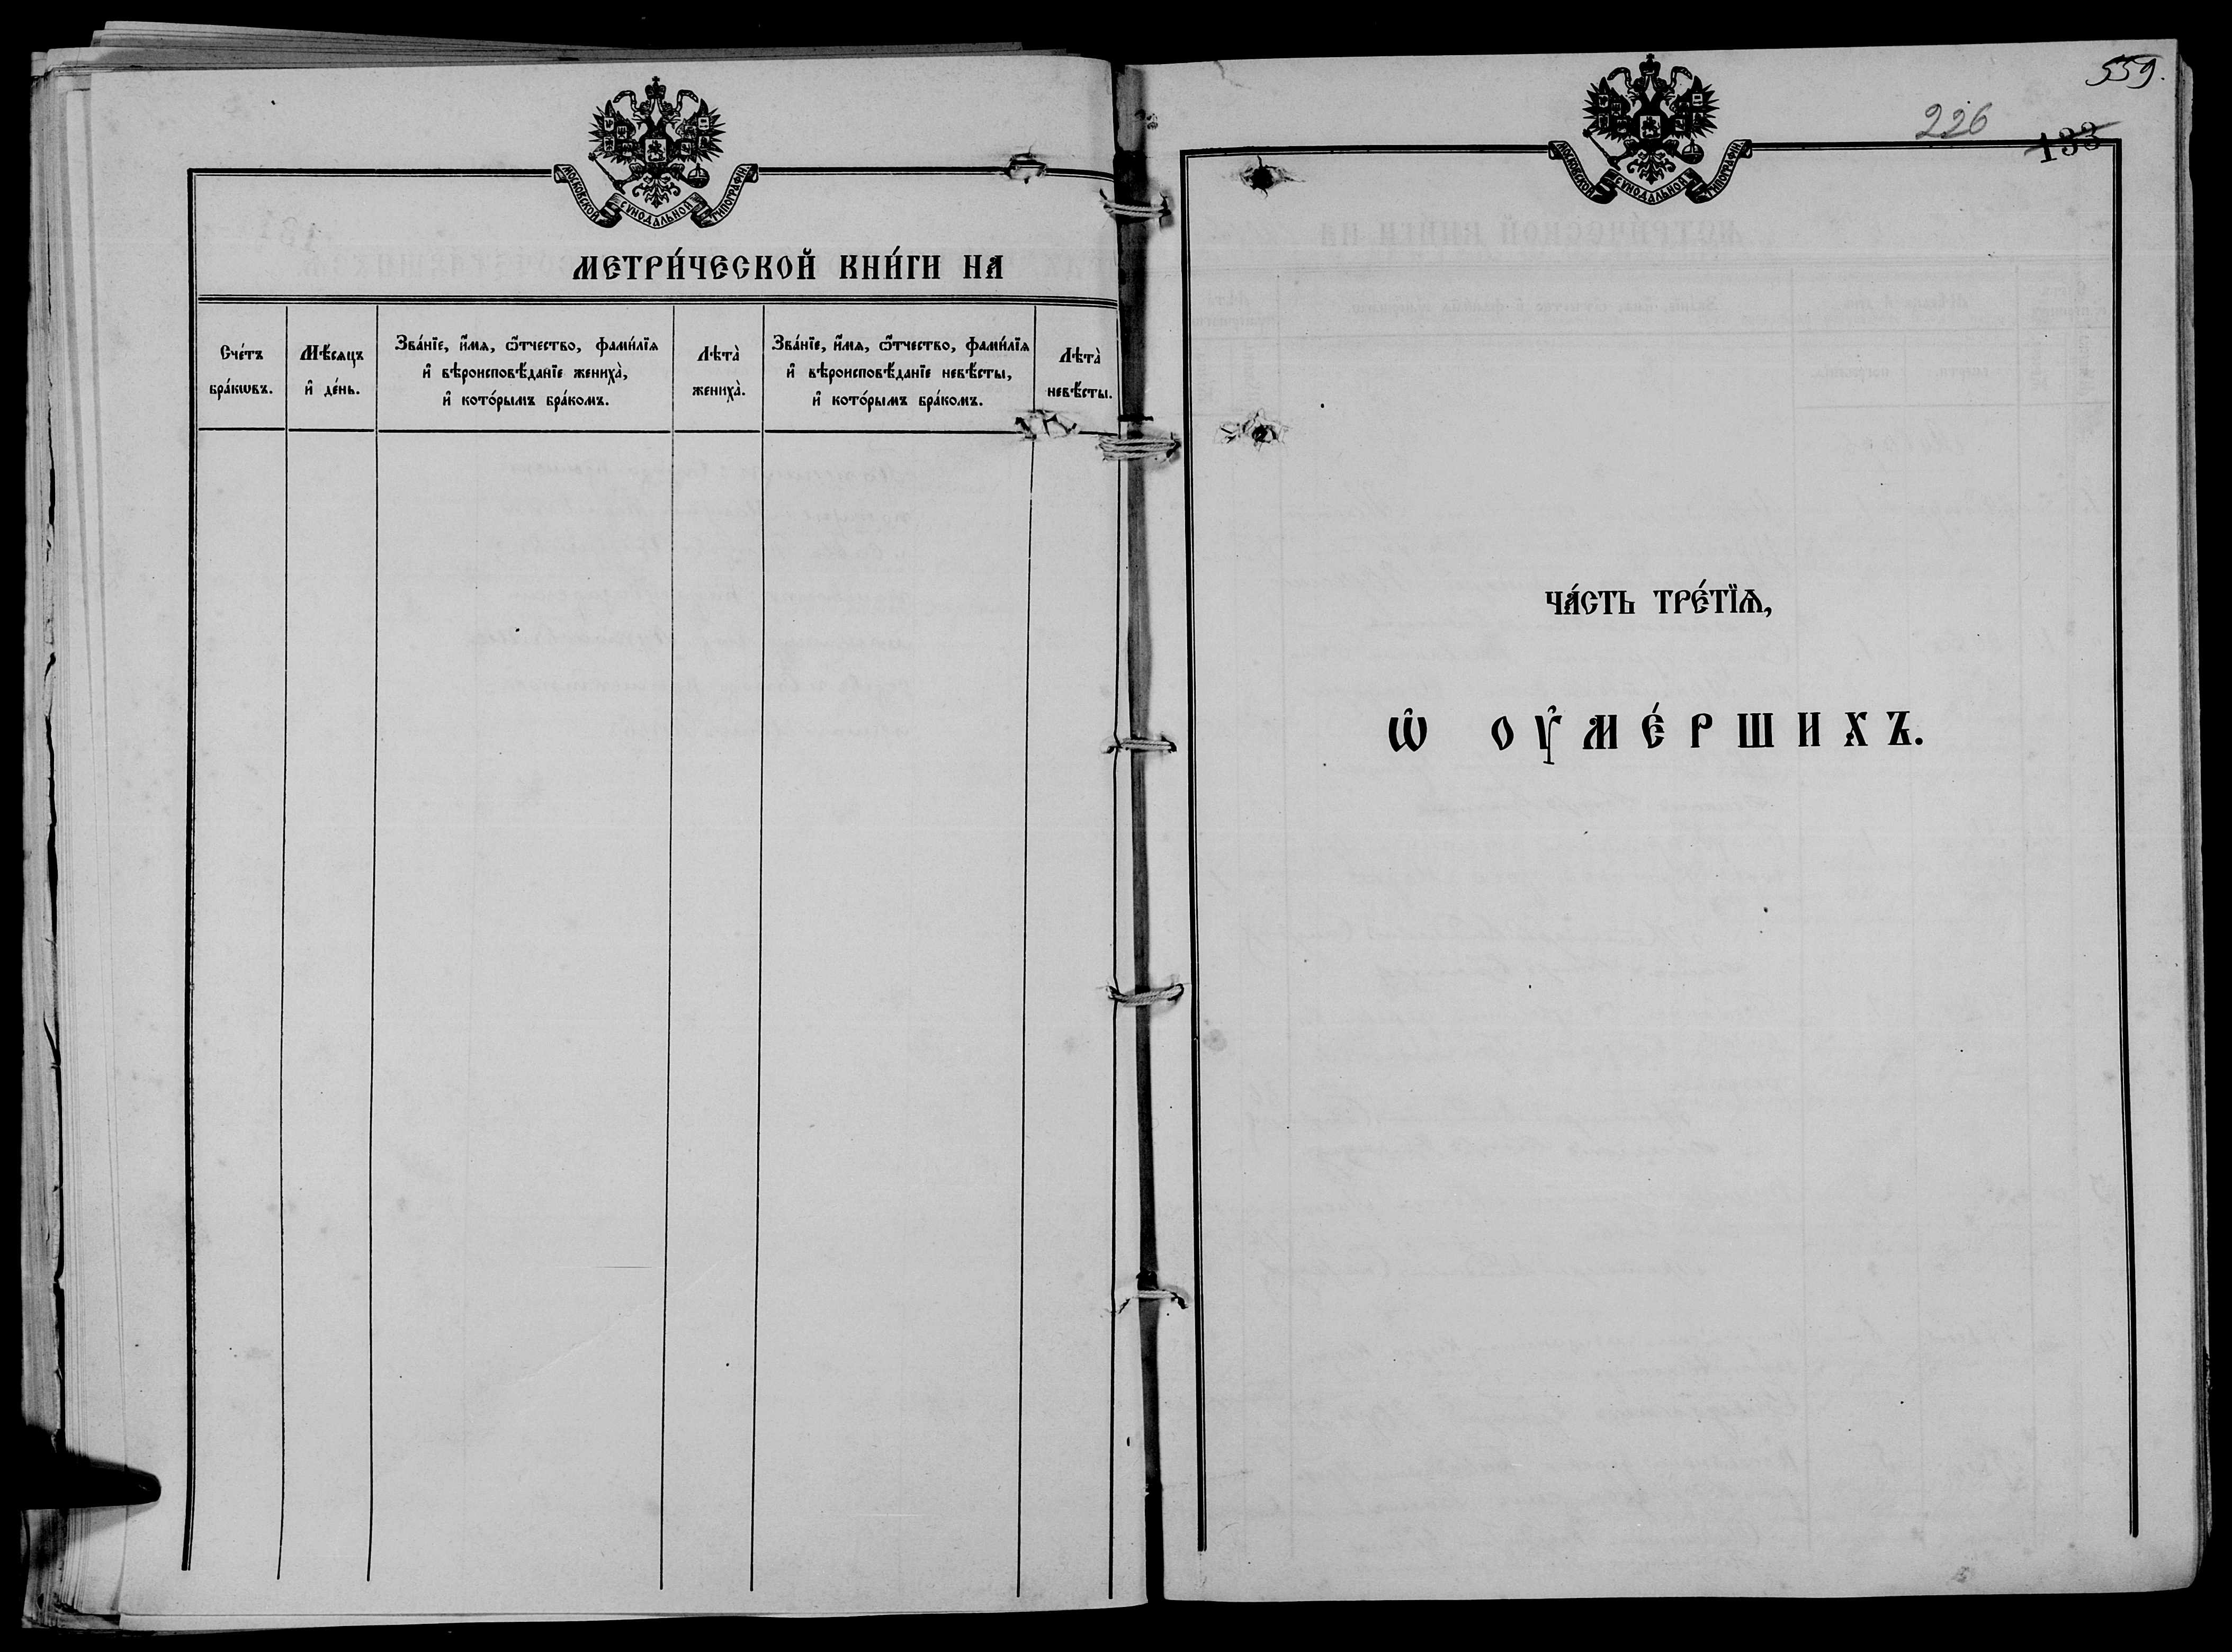 МОСКОВСКОЙ СѴНОДАЛЬНОЙ ТИПОГРАФІИ
МЕТРИ́ЧЕСКОЙ КНИ́ГИ НА
Сче́тъ
бра́кѡвъ.
Мѣ́сяцъ
и҆ де́нь.
Зва́нїе, и҆́мѧ, ѻ҆́тчество, фами́лїѧ
и҆ вѣроисповѣ́данїе жениха̀,
и҆ кото́рымъ бра́комъ.
Лѣта̀
жениха̀.
Зва́нїе, и҆́мѧ, ѻ҆́тчество, фами́лїѧ
и҆ вѣроисповѣ́данїе невѣ́сты,
и҆ кото́рымъ бра́комъ.
Лѣта̀
невѣ́сты.
559.
226
133
МОСКОВСКОЙ СѴНОДАЛЬНОЙ ТИПОГРАФІИ
ЧА́СТЬ ТРЕ́ТЇѦ,
Ѡ҆ ОУ҆МЕ́РШИХЪ.